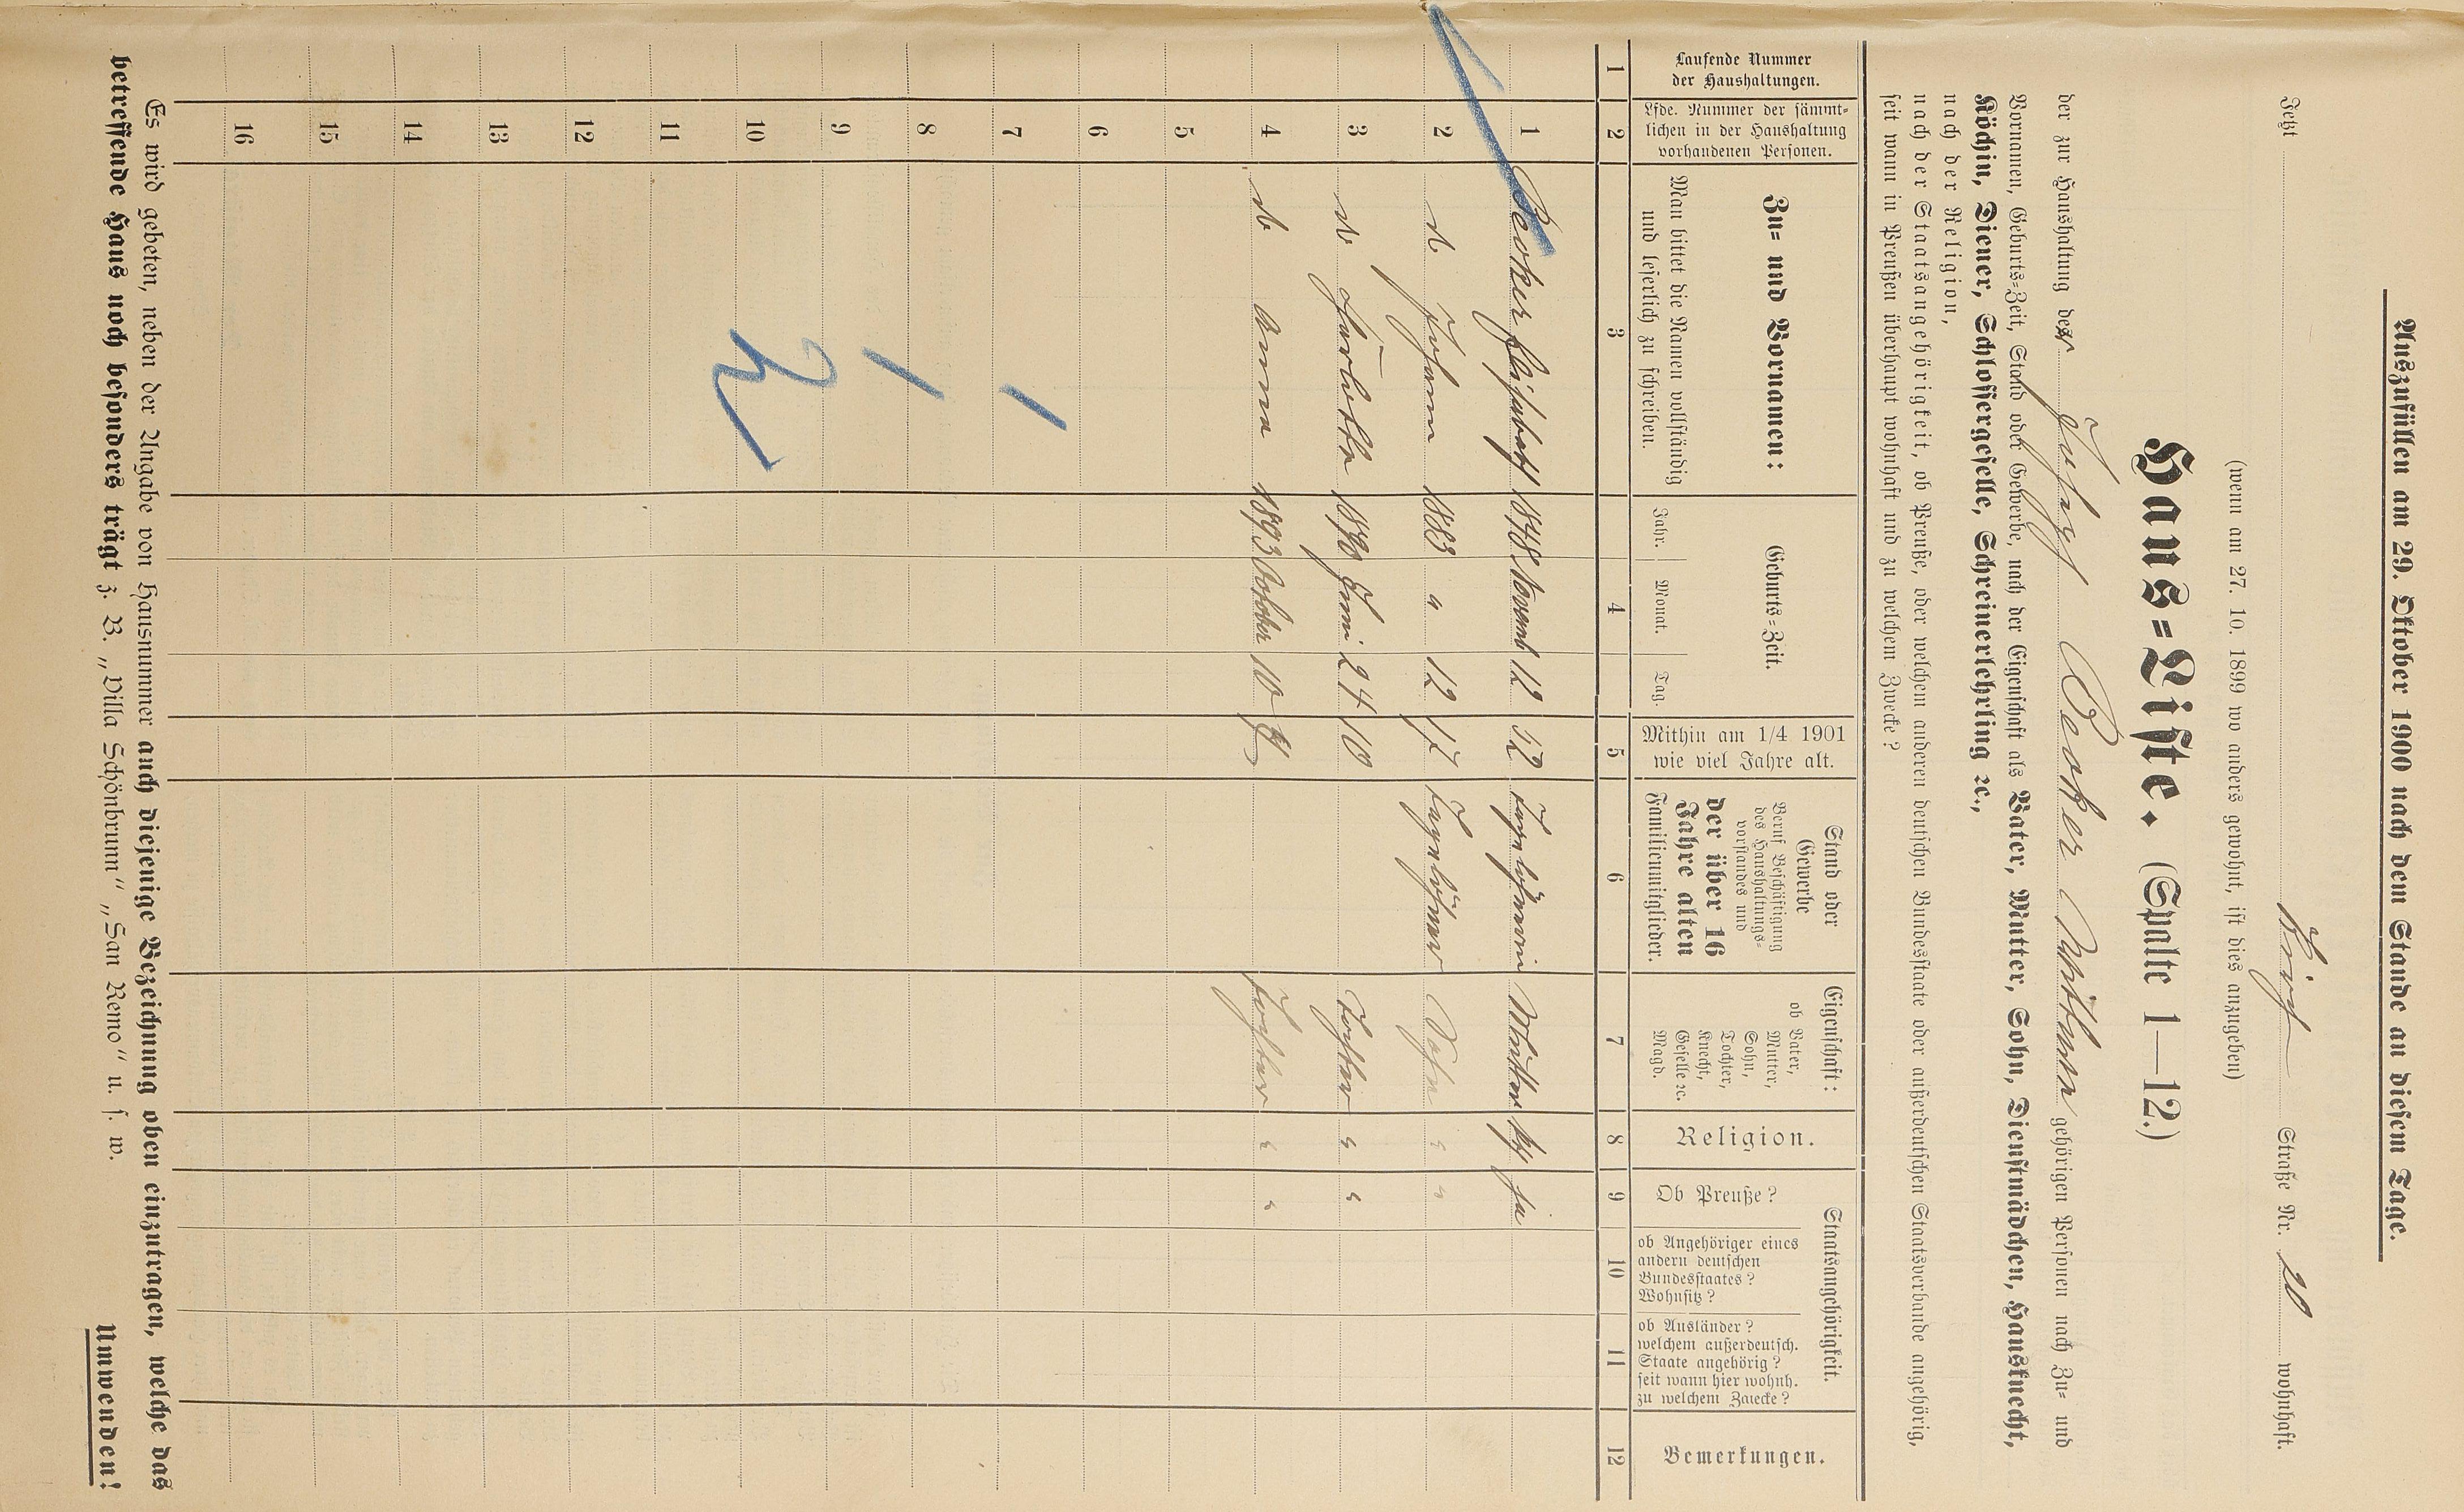 Auszufüllen am 29. Oktober 1900 nach dem Stande an diesem Tage.
Jetzt Straße Nr. 20 wohnhaft.
(wenn am 27. 10. 1899 wo anders gewohnt, ist dies anzugeben)
Haus-Liste. (Spalte 1—12.)
der zur Haushaltung der Johs Becker Wittwe gehörigen Personen nach Zu- und
Vornamen, Geburts-Zeit, Stand oder Gewerbe, nach der Eigenschaft als Vater, Mutter, Sohn, Dienstmädchen, Hausknecht,
Köchin, Diener, Schlossergeselle, Schreinerlehrling ⁊c.,
nach der Religion,
nach der Staatsangehörigkeit, ob Preuße, oder welchem anderen deutschen Bundesstaate oder außerdeutschen Staatsverbande angehörig,
seit wann in Preußen überhaupt wohnhaft und zu welchem Zwecke?
Laufende Nummer
der Haushaltungen.
Lfde. Nummer der sämmt-
lichen in der Haushaltung
vorhandenen Personen.
Zu- und Vornamen:
Man bittet die Namen vollständig
und leserlich zu schreiben.
Geburts-Zeit.
Jahr. Monat. Tag.
Mithin am 1/4 1901
wie viel Jahre alt.
Stand oder
Gewerbe
Beruf Beschäftigung
des Haushaltungs-
vorstandes und
der über 16
Jahre alten
Familienmitglieder.
Eigenschaft:
ob Vater,
Mutter,
Sohn,
Tochter,
Knecht,
Geselle ⁊c.
Magd.
Religion.
Staatsangehörigkeit.
Ob Preuße?
ob Angehöriger eines
andern deutschen
Bundesstaates?
Wohnsitz?
ob Ausländer?
welchem außerdeutsch.
Staate angehörig?
seit wann hier wohnh.
zu welchem Zwecke?
Bemerkungen.
1 2 3 4 5 6 7 8 9 10 11 12
1 Becker Elisabeth 1848 Novemb 12 52 Tagelöhnerin Mutter kth ja
2 do Johann 1883 " 12 17 Tagelöhner Sohn " "
3 do 1890 Juni 24 10 Tochter " "
4 do Anna 1893 October 10 7 Tochter " "
5
6
7
8
9
10
11
12
13
14
15
16
Es wird gebeten, neben der Angabe von Hausnummer auch diejenige Bezeichnung oben einzutragen, welche das
betreffende Haus noch besonders trägt z. B. „Villa Schönbrunn“ „San Remo“ u. s. w.
Umwenden!